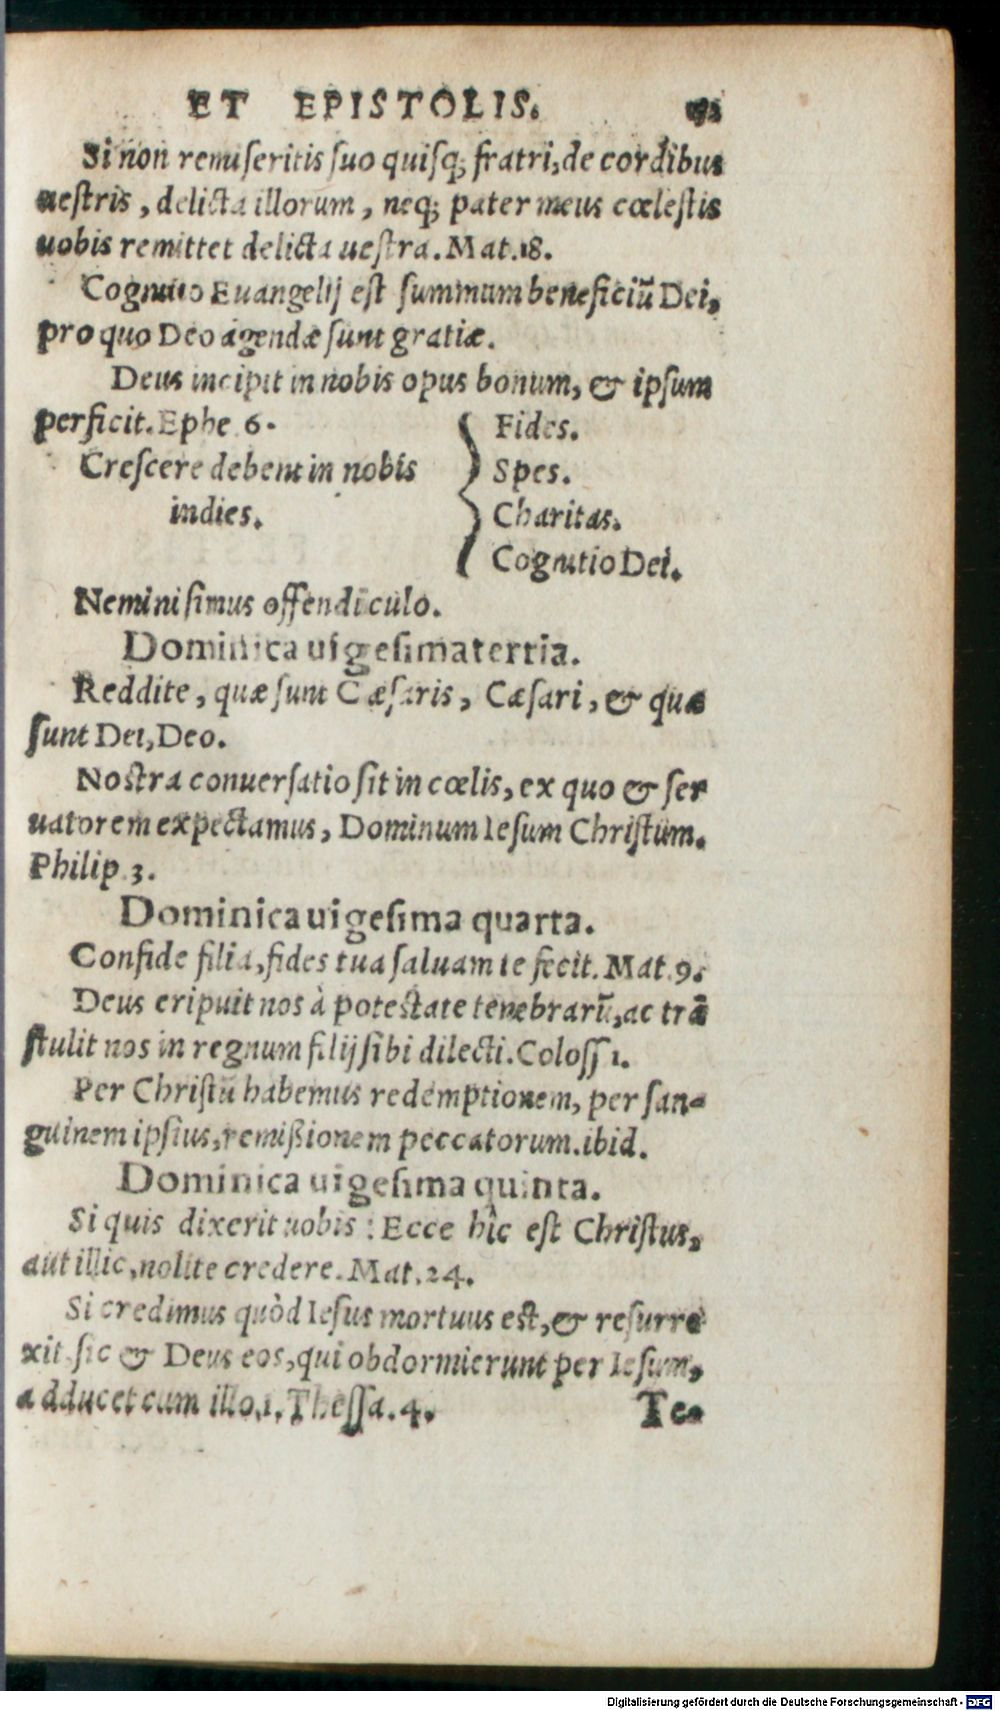 ET EPISTOLIS.
Si non remiseritis suo quisq; fratri, de cordibus
uestris, delicta illorum, neq; pater meus cœlestis
uobis remittet delicta uestra. Mat. 18.
Cognitio Euangelij est summum beneficiū Dei,
pro quo Deo agendæ sunt gratiæ.
Deus incipit in nobis opus bonum, & ipsum
perficit. Ephe 6.
Crescere debent in nobis
indies.
Fides.
Spes.
Charitas.
Cognitio Dei.
Nemini simus offendiculo.
Dominica uigesimatertia.
Reddite, quæ sunt Cæsaris, Cæsari, & quæ
sunt Dei, Deo.
Nostra conuersatio sit in cœlis, ex quo & ser
uatorem expectamus, Dominum Iesum Christum.
Philip 3.
Dominica uigesima quarta.
Confide filia, fides tua saluam te fecit. Mat. 9.
Deus eripuit nos à potestate tenebrarū, ac trā
stulit nos in regnum filij sibi dilecti. Coloss 1.
Per Christū habemus redemptionem, per san-
guinem ipsius, remißionem peccatorum. ibid.
Dominica uigesima quinta.
Si quis dixerit uobis : Ecce hîc est Christus,
aut illic, nolite credere. Mat. 24.
Si credimus quòd Iesus mortuus est, & resurre
xit, sic & Deus eos, qui obdormierunt per Iesum,
adducet cum illo. 1. Thessa. 4.
Te-
Digitalisierung gefördert durch die Deutsche Forschungsgemeinschaft - DFG